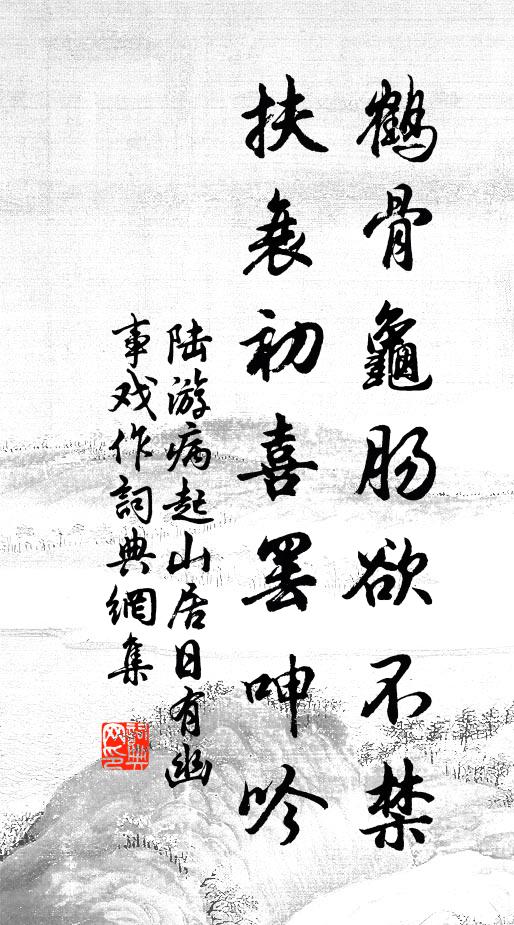 鹤骨龜肠欲不禁
扶衰初喜罢呻吟
陆游病起山居日有幽
事戏作詞典網集